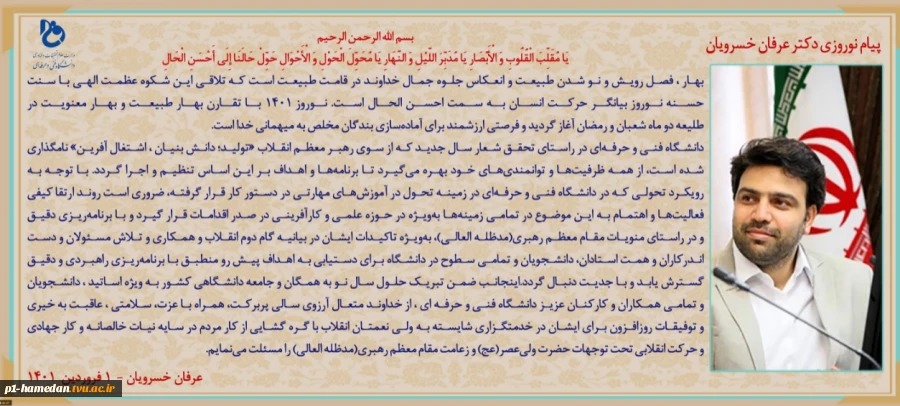 پیام نوروزی دکتر عرفان خسرویان
بسم الله الرحمن الرحیم
یَا مُقَلِّبَ الْقُلُوبِ وَ الْأَبْصَارِ یَا مُدَبِّرَ اللَّیْلِ وَ النَّهَارِ یَا مُحَوِّلَ الْحَوْلِ وَ الْأَحْوَالِ حَوِّلْ حَالَنَا إِلَى أَحْسَنِ الْحَالِ
بهار، فصل رویش و نو شدن طبیعت و انعکاس جلوه جمال خداوند در قامت طبیعت است که تلاقی این شکوه عظمت الهی با سنت
حسنه نوروز بیانگر حرکت انسان به سمت احسن الحال است. نوروز ۱۴۰۱ با تقارن بهار طبیعت و بهار معنویت در
طلیعه دو ماه شعبان و رمضان آغاز گردید و فرصتی ارزشمند برای آماده‌سازی بندگان مخلص به میهمانی خدا است.
دانشگاه فنی و حرفه‌ای در راستای تحقق شعار سال جدید که از سوی رهبر معظم انقلاب «تولید؛ دانش بنیان ، اشتغال آفرین» نامگذاری
شده است، از همه ظرفیت‌ها و توانمندی‌های خود بهره می‌گیرد تا برنامه‌ها و اهداف بر این اساس تنظیم و اجرا گردد. با توجه به
رویکرد تحولی که در دانشگاه فنی و حرفه‌ای در زمینه تحول در آموزش‌های مهارتی در دستور کار قرار گرفته، ضروری است روند ارتقا کیفی
فعالیت‌ها و اهتمام به این موضوع در تمامی زمینه‌ها به‌ویژه در حوزه علمی و کارآفرینی در صدر اقدامات قرار گیرد و با برنامه‌ریزی دقیق
و در راستای منویات مقام معظم رهبری(مدظله العالی)، به‌ویژه تاکیدات ایشان در بیانیه گام دوم انقلاب و همکاری و تلاش مسئولان و دست
اندرکاران و همت استادان، دانشجویان و تمامی سطوح در دانشگاه برای دستیابی به اهداف پیش رو منطبق با برنامه‌ریزی راهبردی و دقیق
گسترش یابد و با جدیت دنبال گردد.اینجانب ضمن تبریک حلول سال نو به همگان و جامعه دانشگاهی کشور به ویژه اساتید ، دانشجویان
و تمامی همکاران و کارکنان عزیز دانشگاه فنی و حرفه ای ، از خداوند متعال آرزوی سالی پربرکت، همراه با عزت، سلامتی ، عاقبت به خیری
و توفیقات روزافزون برای ایشان در خدمتگزاری شایسته به ولی نعمتان انقلاب با گره گشایی از کار مردم در سایه نیات خالصانه و کار جهادی
و حرکت انقلابی تحت توجهات حضرت ولی‌عصر(عج) و زعامت مقام معظم رهبری(مدظله العالی) را مسئلت می‌نمایم.
عرفان خسرویان - ۱ فروردین ۱۴۰۱
p1-hamedan.tvu.ac.ir